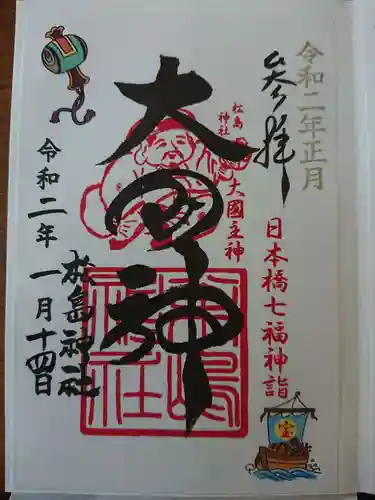 令和二年正月
参拝
日本橋七福神詣
宝
松島
神社
大國主神
大国神
松島神社
松島
神社
令和二年一月十四日